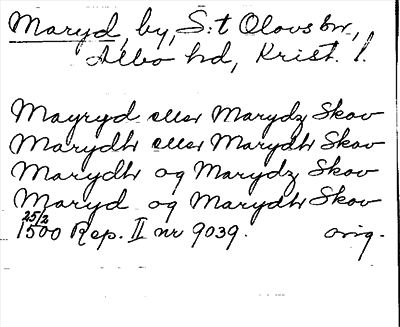 Maryd, by, S:t Olovs sn.,
Albo hd, Krist. l.
Mayryd eller Marydz Skov
Marydh eller Marydh Skov
Marydh og Marydz Skov
Maryd og Marydh Skov
25/2
1500 Rep. II nr 9039. orig.